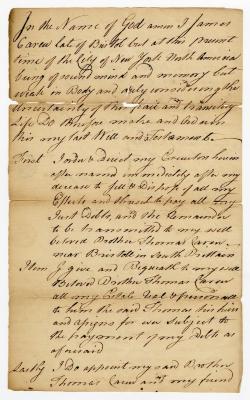 In the Name of God amen I James
Carew late of Bristol but at this present
time of the City of New York North America
being of sound mind and memory but
weak in Body and duly considering the
uncertainty of this frail and transitory
Life Do therefore make and declare
this my last Will and Testament.
First I order & direct my Executors herein
after named immediately after my
decease to sell & dispose of all my
Effects and thereout to pay all my
Just Debts, and the Remainder
to be transmitted to my well
beloved Brother Thomas Carew
near Bristoll in South Brittain
Item I give and Bequeath to my well
Beloved Brother Thomas Carew
all my Estate real & personal
to him the said Thomas his heirs
and assigns for ever subject to
the payment of my Debts as
aforesaid
Lastly I Do appoint my said Brother
Thomas Carew and my friend